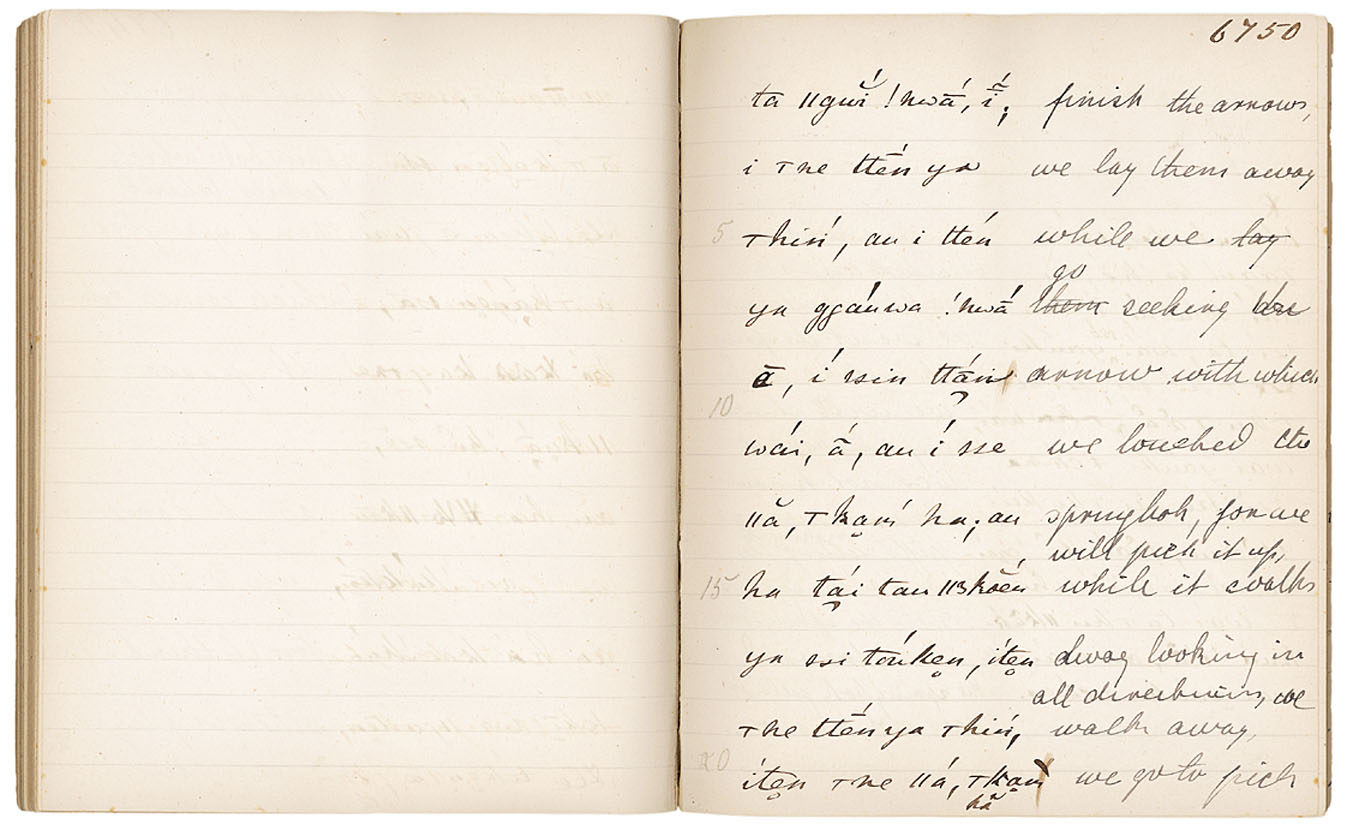 6750
ta ǁgwĭ́ !hwā́, ī̆́; finish the arrows,
i ⊤ne ttḗn ya we lay them away
5 ⊤hiń, au i ttén while we lay
go
ya ggáuwa !hwā́ them seeking the
ā, í ssin ttá̱i arrow with which
10
wái, ā́, au í sse we touched the
ǁă, ⊤ka̱ḿ ha; au springbok, for we
will pick it up,
15 ha tá̱i tau ǁ3kōéń while it walks
ya ssi tóuke̱n, íte̱n away looking in
all directions, we
⊤ne ttḗn ya ⊤hiń, walk away,
20 íte̱n ⊤ne ǁá, ⊤ka̱m we go to pick
hă